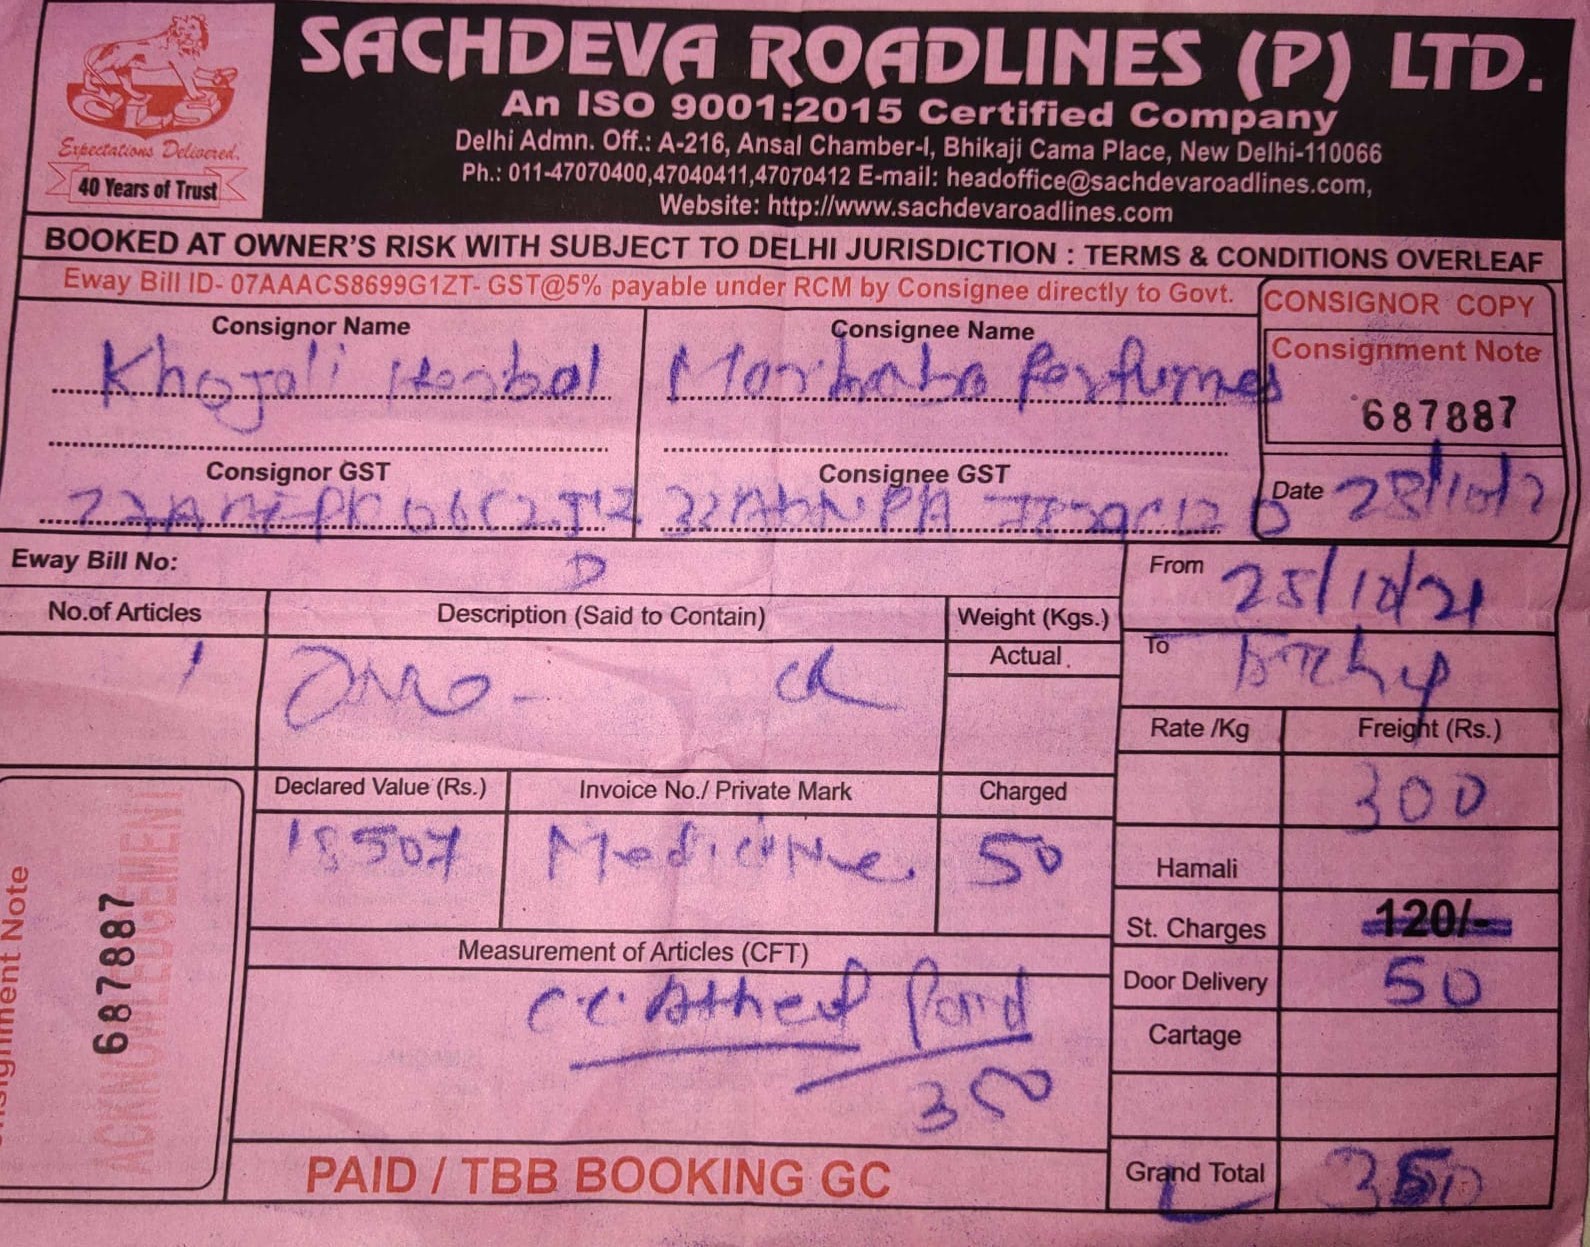 SACHDEVA ROADLINES (P) LTD.
An ISO 9001:2015 Certified Company
Delhi Admn. Off.: A-216, Ansal Chamber-I, Bhikaji Cama Place, New Delhi-110066
Ph.: 011-47070400,47040411,47070412 E-mail: headoffice@sachdevaroadlines.com,
Website: http://www.sachdevaroadlines.com
Expectations Delivered.
40 Years of Trust
BOOKED AT OWNER'S RISK WITH SUBJECT TO DELHI JURISDICTION : TERMS & CONDITIONS OVERLEAF
Eway Bill ID- 07AAACS8699G1ZT- GST@5% payable under RCM by Consignee directly to Govt.
CONSIGNOR COPY
Consignor Name
Consignee Name
Consignment Note
Khojali Herbal
Marhaba Perfumes
687887
Consignor GST
Consignee GST
Date
Eway Bill No:
From 25/10/21
No.of Articles
Description (Said to Contain)
Weight (Kgs.)
To
Actual
1
Rate /Kg
Freight (Rs.)
300
Declared Value (Rs.)
Invoice No./ Private Mark
Charged
18507
Medicine
50
Hamali
St. Charges 120/-
Measurement of Articles (CFT)
Door Delivery 50
CC Atthed Paid
350
Cartage
Grand Total 350
PAID / TBB BOOKING GC
Consignment Note
687887
ACKNOWLEDGEMENT